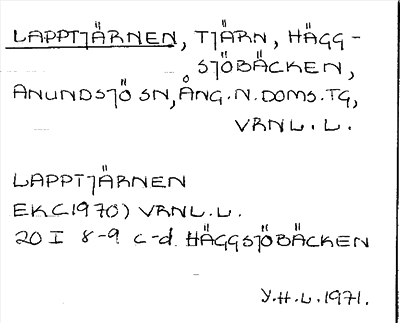 LAPPTJÄRNEN, TJÄRN, HÄGG-
SJÖBÄCKEN,
ANUNDSJÖ SN, ÅNG. N. DOMS. TG,
VRNL. L.
LAPPTJÄRNEN
EK(1970) VRNL. L.
20 I 8-9 c-d HÄGGSJÖBÄCKEN
Y.H.L. 1971.